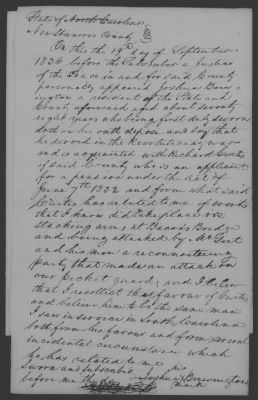 State of North Carolina
New Hanover County
On this the 19th day of September
1836 before the Subscriber a Justice
of the Peace in and for said County
personally appeared Joshua
a resident of the State and
County aforesaid aged about seventy
eight years who being first duly sworn
doth on his oath depose and say that
he served in the Revolutionary War
and is acquainted with Richard
of said County who is an applicant
for a pension under the act of
June 7th 1832 and from what said
has related to me of events
that I know did take place viz
stacking arms at Bacons Bridge
and being attacked by
and his men a reconnoitering
party that made an attack on
our Picket guard, and I
that I recollect the favour of
and believe him to be the same man
I saw in service in South Carolina
both from his favour and from several
incidental circumstances which
he has related to me
Sworn and subscribed his
before me Joshua
mark